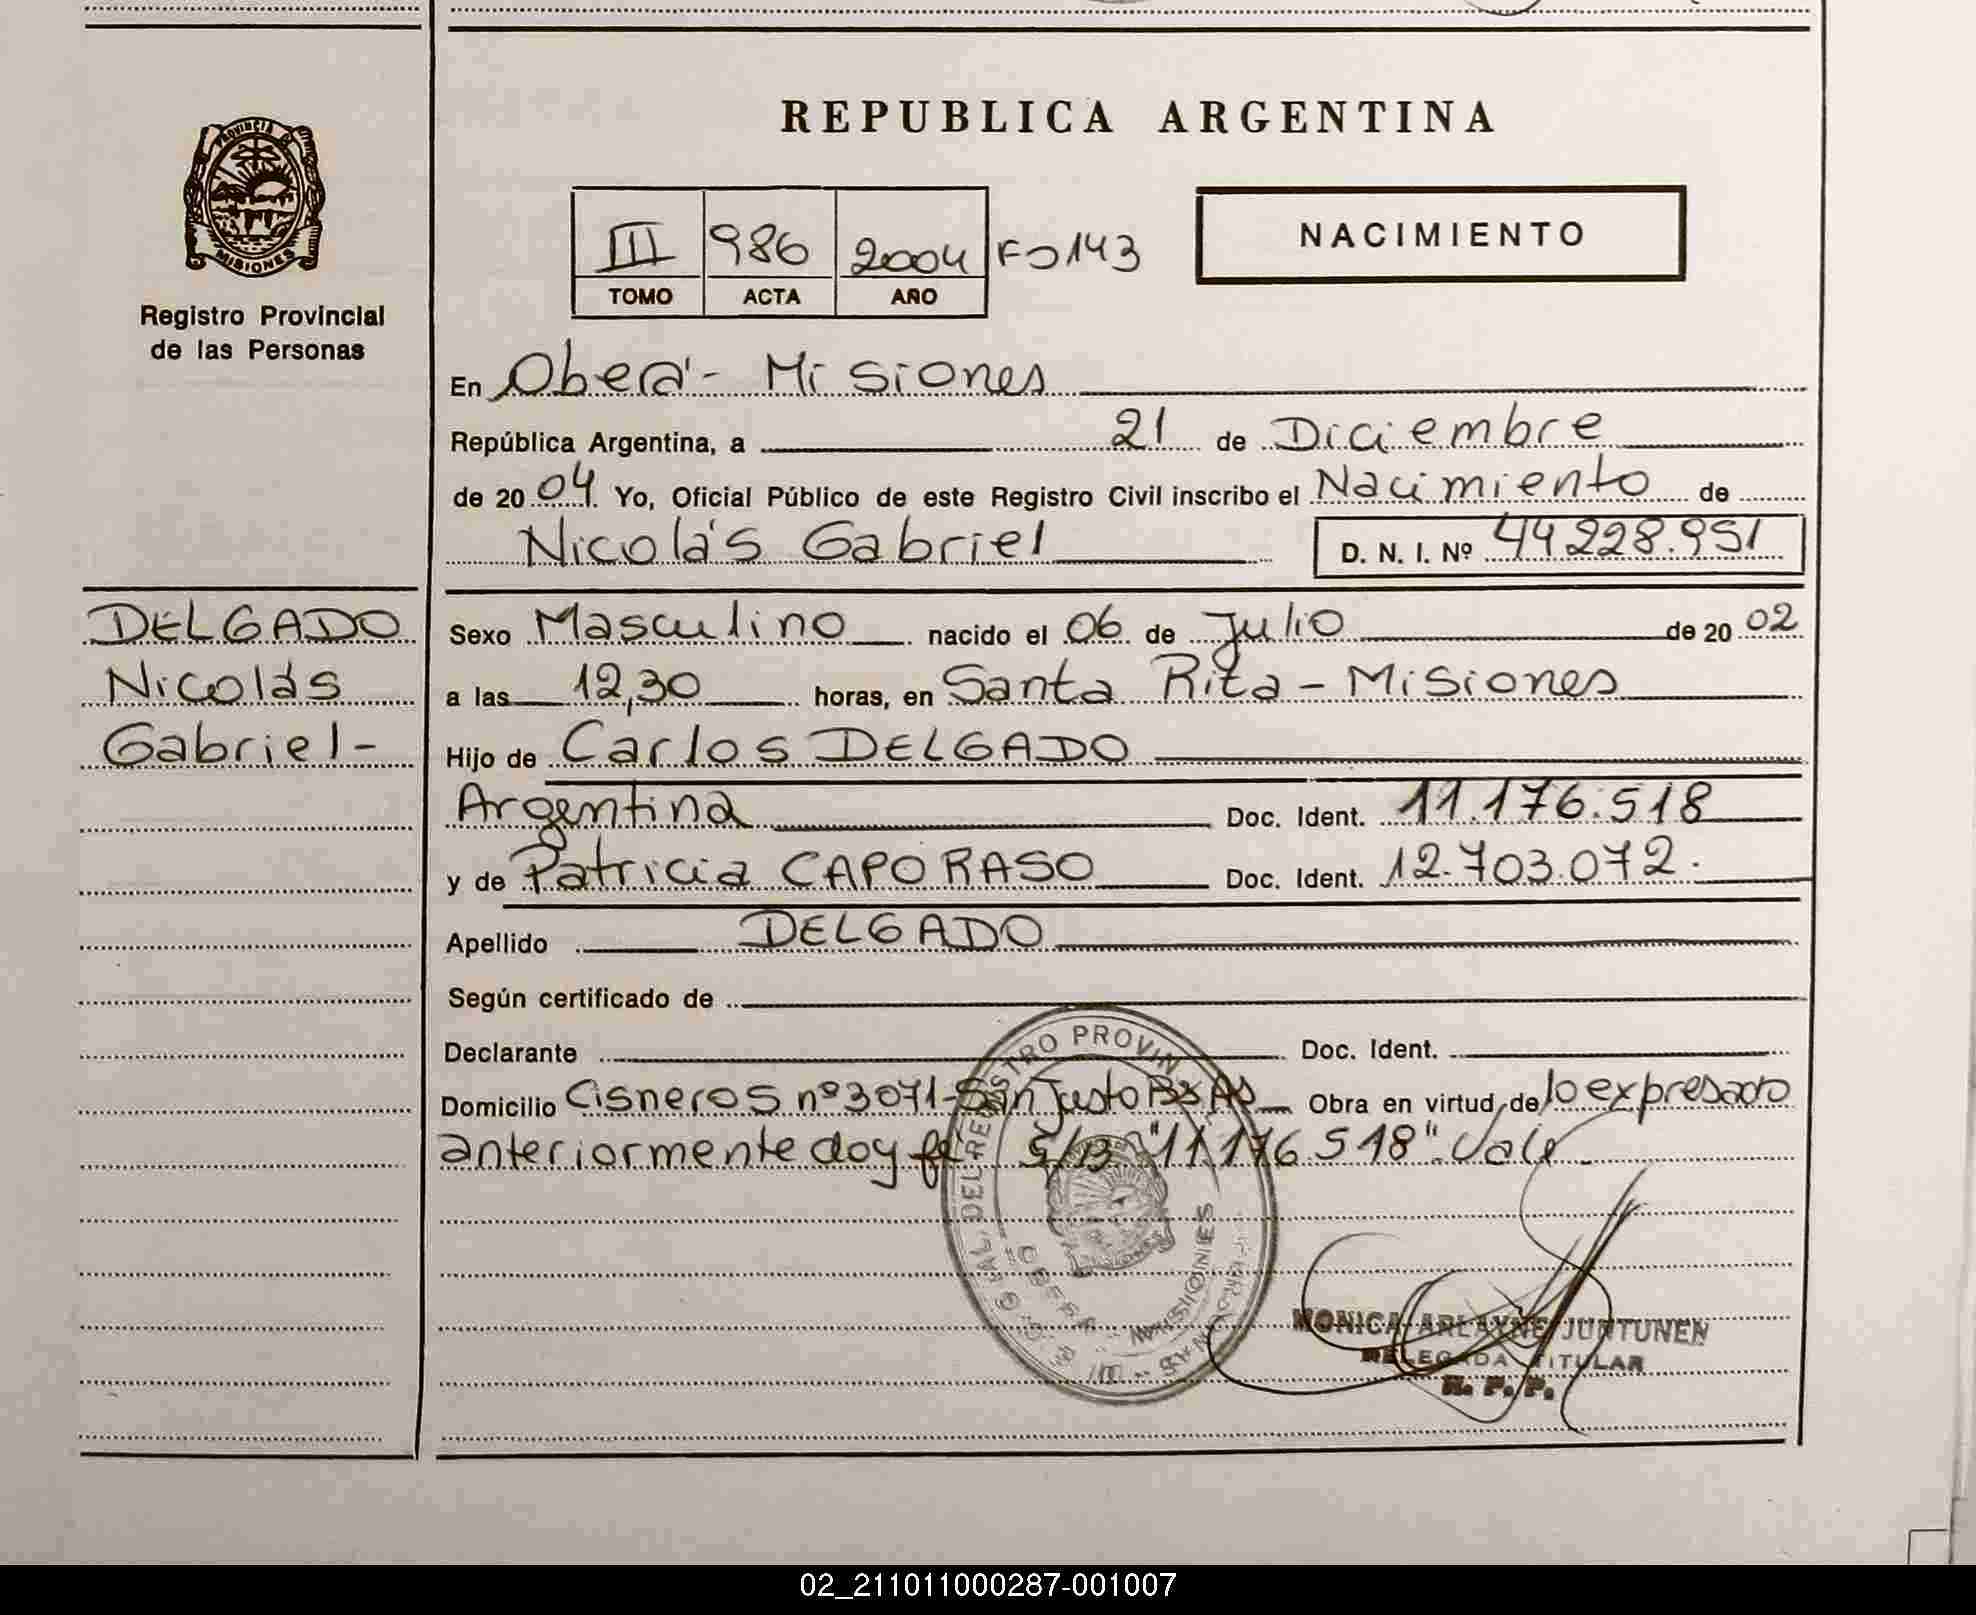 REPUBLICA ARGENTINA
PROVINCIA DE
MISIONES
Registro Provincial
de las Personas
III 986 2004 Fº 143
TOMO ACTA AÑO
NACIMIENTO
En Oberá - Misiones
República Argentina, a 21 de Diciembre
de 20 04 Yo, Oficial Público de este Registro Civil inscribo el Nacimiento de
Nicolás Gabriel D. N. I. Nº 44228.951
DELGADO
Nicolás
Gabriel-
Sexo Masculino nacido el 06 de Julio de 20 02
a las 12,30 horas, en Santa Rita - Misiones
Hijo de Carlos DELGADO
Argentina Doc. Ident. 11.176.518
y de Patricia CAPORASO Doc. Ident. 12.703.072.
Apellido DELGADO
Según certificado de
Declarante Doc. Ident.
Domicilio Cisneros nº 3071-San Justo Bs As Obra en virtud de lo expresado
anteriormente doy fe S/B "11.176.518" Vale
DEL REGISTRO PROVIN
OBERA - MISIONES
MONICA ARLAYNE JUNTUNEN
DELEGADA TITULAR
R. P. P.
02_211011000287-001007